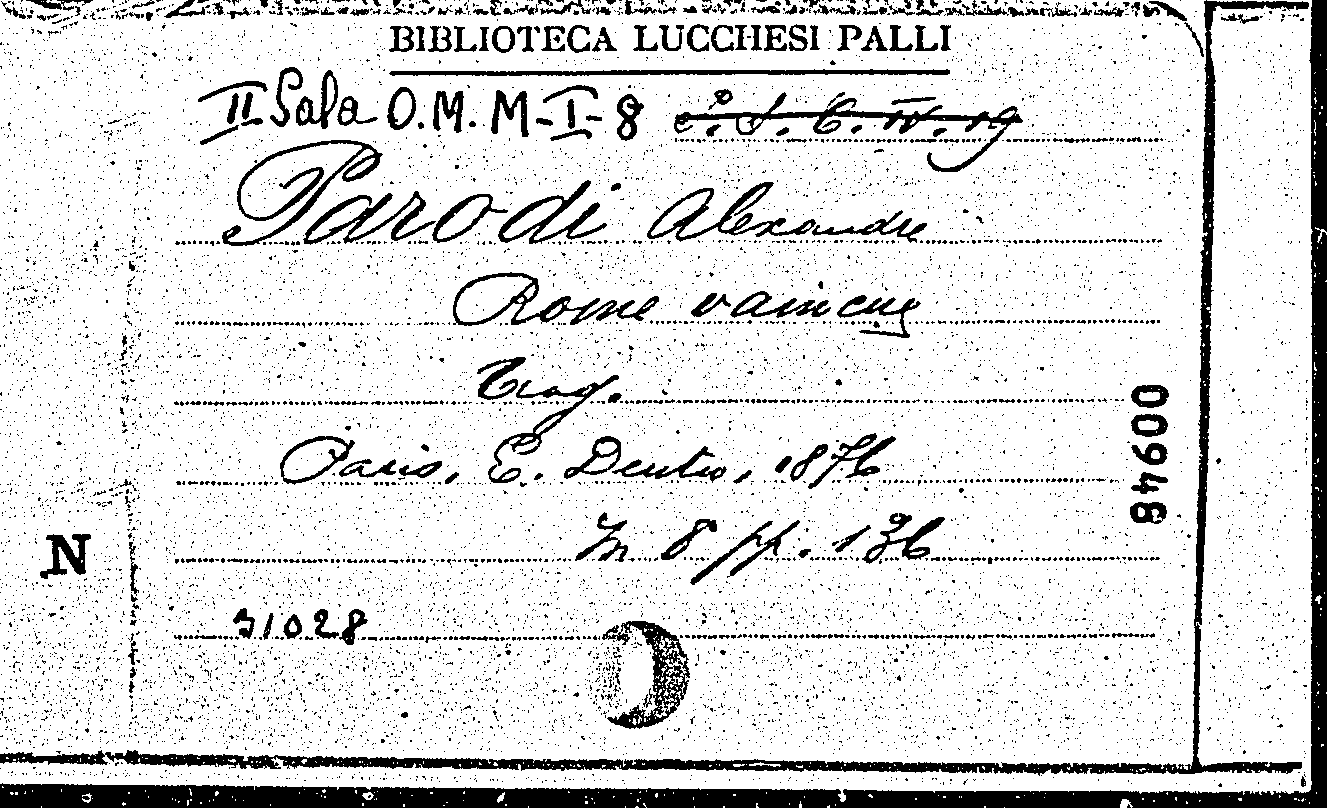 BIBLIOTECA LUCCHESI PALLI
II Sala O.M. M-I-8
Parodi Alexandre
Rome vaincue
Trag.
Paris, E. Dentu, 1876
In 8 pp. 136
N
31028
00948